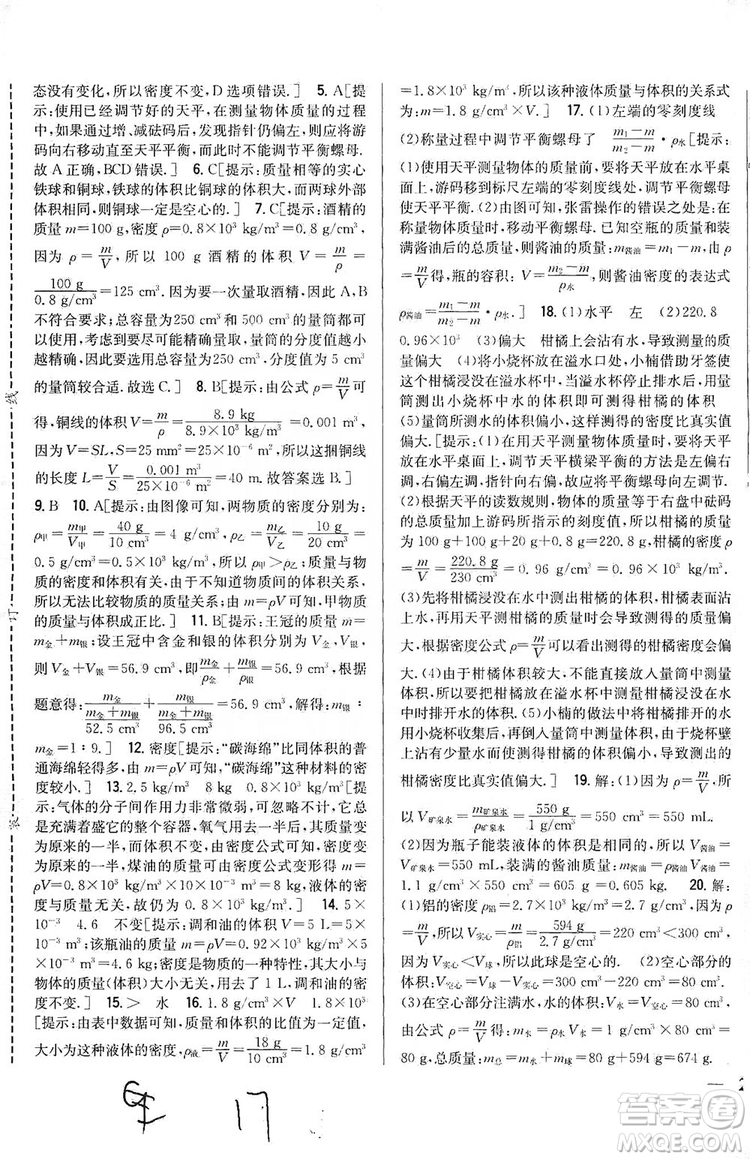 态没有变化，所以密度不变，D选项错误.］ 5. A［提
示：使用已经调节好的天平，在测量物体质量的过程
中，如果增、减砝码后，发现指针仍偏左，则应将游
码向右移动直至天平平衡，而此时不能调节平衡螺母.
故A正确，BCD错误.］ 6. C［提示：质量相等的实心
铁球和铜球，铁球的体积比铜球的体积大，而两球外部
体积相等，则铜球一定是空心的.］ 7. C［提示：酒精的
质量m=100 g，密度ρ=0.8×10³ kg/m³=0.8 g/cm³，
因为ρ=m/V，所以100 g酒精的体积V=m/ρ=
100 g/0.8 g/cm³=125 cm³. 因为要一次量取酒精，因此A、B
不符合要求；总容量为250 cm³和500 cm³的量筒都
可以使用，考虑到要尽可能精确，量筒的分度值越小
越精确，因此总容量为250 cm³、分度值为5 cm³
的量筒较合适. 故选C.］ 8. B［提示：由公式ρ=m/V可
得，铜线的体积V=m/ρ=8.9 kg/8.9×10³ kg/m³=0.001 m³，
因为V=SL，S=25 mm²=25×10⁻⁶ m²，所以这捆铜线
的长度L=V/S=0.001 m³/25×10⁻⁶ m²=40 m. 故答案选B.］
9. B 10. A［提示：由图像可知，两物质的密度分别为：
ρ甲=m甲/V甲=40 g/10 cm³=4 g/cm³，ρ乙=m乙/V乙=10 g/20 cm³=
0.5 g/cm³，所以ρ甲>ρ乙；质量与体积的多少有关，与
物质的密度和体积有关，由于不知道物质的体积关系，
所以无法比较物质的质量关系；密度不变时，甲物质的
质量与体积成正比.］ 11. B［提示：王冠的质量m=
m金+m银；设王冠中含金和银的体积分别为V金、V银，
则V金+V银=56.9 cm³，即m金/ρ金+m银/ρ银=56.9 cm³，根据
题意得：(m金+m银)/(m金/52.5 cm³+m银/96.5 cm³)=56.9 cm³，解得：m银：
m金=1：9.］ 12. 密度［提示：“碳海绵”比同体积的普
通海绵轻得多，因此“碳海绵”这种材料的主要特点是
密度较小.］ 13. 2.5 kg/m³ 8 kg 0.8×10³ kg/m³［提
示：气体的分子间作用力非常微弱，可以忽略不计，它
总是充满着盛它的整个容器，氧气用去一半后，体积不
变，质量变为原来的一半，由密度公式可知，密度变为
原来的一半，煤油的质量由密度公式变形得m=
ρV=0.8×10³ kg/m³×0.01 m³=8 kg，液体的密度
与质量、体积无关，密度不变.］ 14. 4.6 5×
10⁻³ 4.6 不变［提示：调和油的体积V=5 L=5×10⁻³
m³；该瓶油的质量m=ρV=0.92×10³ kg/m³×5×
10⁻³ m³=4.6 kg，密度是物质的一种特性，其大小与
物质的质量和体积的大小无关，用去一半后，剩余油的
密度不变.］ 15. > 水 16. 1.8 g/cm³ m=1.8 g/cm³×V［提
示：由表中数据可知，质量与体积的比值为一定值，
大小为这种液体的密度，ρ液=m/V=18 g/10 cm³=1.8 g/cm³
=1.8×10³ kg/m³，所以该种液体质量与体积的关系式
为：m=1.8 g/cm³×V.］ 17. (1)左端的零刻度线
(2)称量过程中调节平衡螺母了 (m₁−m)/(m₂−m)·ρ水［提示：
(1)使用天平测量物体的质量前，要将天平放在水平桌
面上，游码移到标尺左端的零刻度线处，调节平衡螺母
使天平平衡. (2)由图可知，张雷操作的错误之处是：在
称量物体质量时，移动平衡螺母. 已知空瓶的质量和装
满酱油后的总质量，则酱油的质量：m酱油=m₁−m；瓶
的容积V=(m₂−m)/ρ水，即瓶的容积，则酱油密度的表达式
ρ酱油=(m₁−m)/(m₂−m)·ρ水.］ 18. (1)水平 左 (2)220.8
0.96×10³ (3)偏大 柑橘上会沾有水，导致所测质量
偏大 (4)将小烧杯放在溢水口处，小楠借助牙签使
这个柑橘浸没在溢水杯中，直至溢水杯停止排水，用量
筒测出小烧杯中水的体积即可测得柑橘的体积
(5)量筒所测水的体积偏小，这样测得的密度比真实值
偏大［提示：(1)使用天平测量物体质量时，首先要将
天平放在水平桌面上，调节天平横梁平衡的方法是左偏右
调，右偏左调，指针向右偏，应将平衡螺母向左调.
(2)根据天平的读数规则，物体的质量等于右盘中砝码的
质量加上游码所指示的刻度值，所以柑橘的质量
为100 g+100 g+20 g+0.8 g=220.8 g，柑橘的密度
为：ρ=m/V=220.8 g/230 cm³=0.96 g/cm³=0.96×10³ kg/m³.
(3)先将柑橘浸没在水中测出柑橘的体积，因柑橘表面沾
上水，再用天平测量柑橘的质量时会导致所测的质量
偏大，根据密度公式ρ=m/V可以看出，所测结果会
偏大. (4)由于柑橘体积较大，不能直接放入量筒中测量
体积，所以要把柑橘放在溢水杯中，用烧杯收集溢水杯
中排开水的体积. (5)小楠的做法中将柑橘排开的水
用小烧杯收集后，再倒入量筒中测量体积，由于烧杯壁
上沾有少量水而导致所测的体积偏小，导致测出的
柑橘密度比真实值偏大.］ 19. 解：(1)由公式ρ=m/V可知，
所以V矿泉水=m矿泉水/ρ矿泉水=550 g/1 g/cm³=550 cm³=550 mL.
(2)因为瓶子能装液体的体积是相同的，所以V酱油=
V矿泉水=550 mL，装满的酱油质量：m酱油=ρ酱油V酱油=
1.1 g/cm³×550 cm³=605 g=0.605 kg. 20. 解：
(1)铝的密度ρ铝=2.7×10³ kg/m³=2.7 g/cm³，由ρ=
m/V，所以V实心=m/ρ铝=594 g/2.7 g/cm³=220 cm³<300 cm³，
即：V实心<V球，所以此球是空心的. (2)空心部分的
体积：V空心=V球−V实心=300 cm³−220 cm³=80 cm³.
(3)在空心部分注满水，水的体积：V水=V空心=80 cm³，
由公式ρ=m/V得：m水=ρ水V水=1 g/cm³×80 cm³=
80 g，总质量：m总=m水+m球=80 g+594 g=674 g.
全 17
答案圈
MXQE.COM